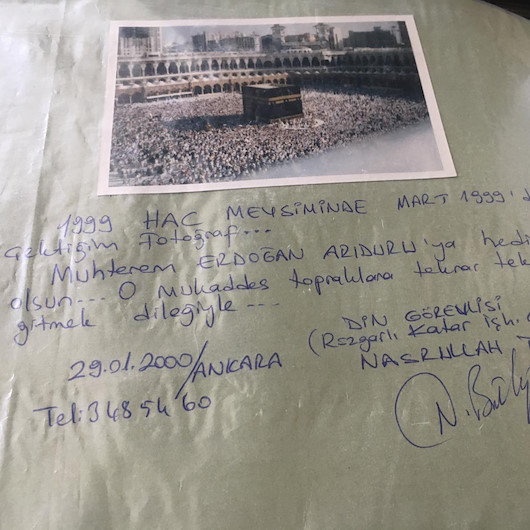 1999 HAC MEVSİMİNDE MART 1999'd
Çektiğim Fotoğraf...
Muhterem ERDOĞAN ARIDURU'ya hedi
olsun... O mukaddes topraklara tekrar tek
gitmek dileğiyle...
DİN GÖREVLİSİ
(Rüzgarlı Katar işh.
NASRULLAH
29.01.2000/ANKARA
Tel: 348 54 60